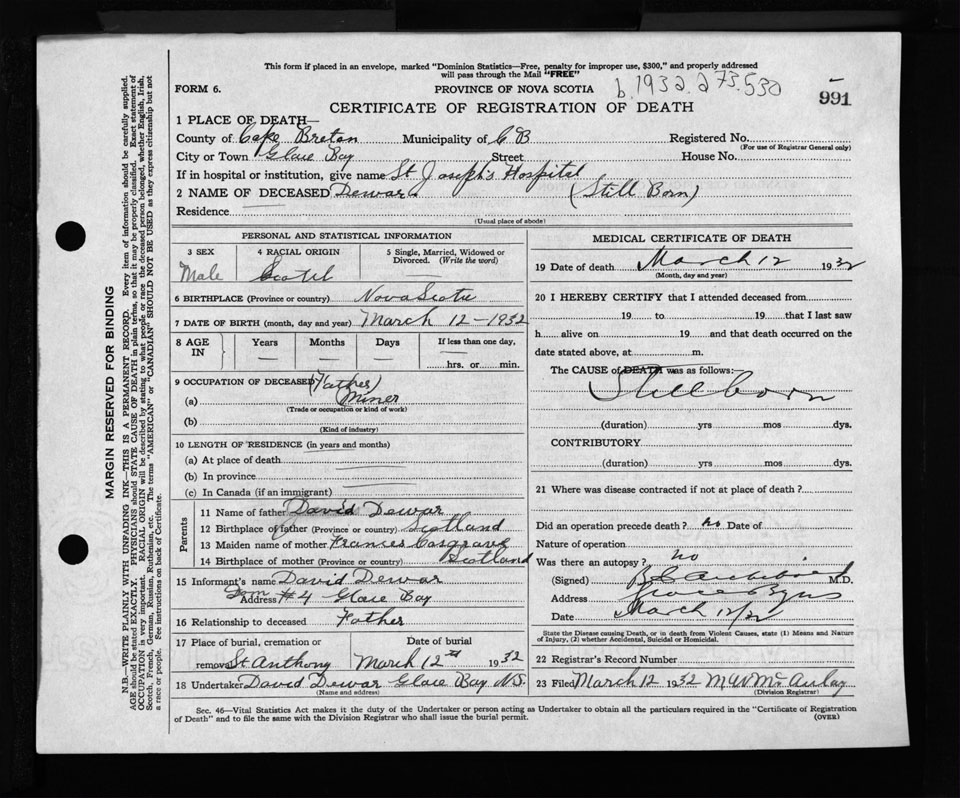 This form if placed in an envelope, marked "Dominion Statistics—Free, penalty for improper use, $300," and properly addressed
will pass through the Mail "FREE"
FORM 6.
PROVINCE OF NOVA SCOTIA
b. 1932.273.530
991
CERTIFICATE OF REGISTRATION OF DEATH
1 PLACE OF DEATH—
County of Cape Breton Municipality of C B Registered No.
(For use of Registrar General only)
City or Town Glace Bay Street House No.
If in hospital or institution, give name St Joseph's Hospital
2 NAME OF DECEASED Dewar (Still Born)
Residence
(Usual place of abode)
PERSONAL AND STATISTICAL INFORMATION
3 SEX
Male
4 RACIAL ORIGIN
5 Single, Married, Widowed or Divorced. (Write the word)
6 BIRTHPLACE (Province or country) Nova Scotia
7 DATE OF BIRTH (month, day and year) March 12 - 1932
8 AGE IN
Years
Months
Days
If less than one day,
hrs. or min.
9 OCCUPATION OF DECEASED (Father)
(a) Miner
(Trade or occupation or kind of work)
(b)
(Kind of industry)
10 LENGTH OF RESIDENCE (in years and months)
(a) At place of death
(b) In province
(c) In Canada (if an immigrant)
Parents
11 Name of father David Dewar
12 Birthplace of father (Province or country) Scotland
13 Maiden name of mother Frances Cosgrave
14 Birthplace of mother (Province or country) Scotland
15 Informant's name David Dewar
Dom
Address #4 Glace Bay
16 Relationship to deceased Father
17 Place of burial, cremation or Date of burial
removal St Anthony March 12th 1932
18 Undertaker David Dewar Glace Bay N.S.
(Name and address)
MEDICAL CERTIFICATE OF DEATH
19 Date of death March 12 1932
(Month, day and year)
20 I HEREBY CERTIFY that I attended deceased from
19 to 19 that I last saw
h alive on 19 and that death occurred on the
date stated above, at m.
The CAUSE of DEATH was as follows:—
Stillborn
(duration) yrs mos dys.
CONTRIBUTORY
(duration) yrs mos dys.
21 Where was disease contracted if not at place of death?
Did an operation precede death? no Date of
Nature of operation
Was there an autopsy? no
(Signed) Archibald M.D.
Address
Date March 12/32
State the Disease causing Death, or in death from Violent Causes, state (1) Means and Nature
of Injury, (2) whether Accidental, Suicidal or Homicidal.
22 Registrar's Record Number
23 Filed March 12 1932 M W McAulay
(Division Registrar)
Sec. 46—Vital Statistics Act makes it the duty of the Undertaker or person acting as Undertaker to obtain all the particulars required in the "Certificate of Registration
of Death" and to file the same with the Division Registrar who shall issue the burial permit.
(OVER)
MARGIN RESERVED FOR BINDING
N.B.—WRITE PLAINLY WITH UNFADING INK—THIS IS A PERMANENT RECORD. Every item of information should be carefully supplied.
AGE should be stated EXACTLY. PHYSICIANS should STATE CAUSE OF DEATH in plain terms, so that it may be properly classified. Exact statement of
OCCUPATION is very important. RACIAL ORIGIN will be described by stating to what people or race the deceased person belonged, whether English, Irish,
Scotch, French, German, Russian, Ruthenian, etc. The terms "AMERICAN" or "CANADIAN" SHOULD NOT BE USED as they express citizenship but not
a race or people. See instructions on back of Certificate.